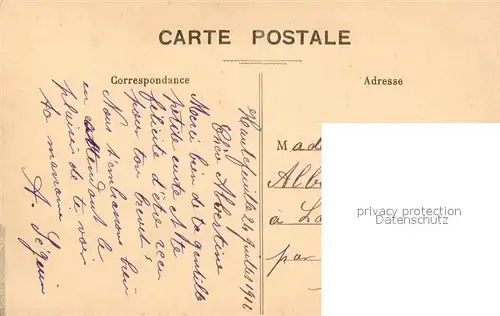 CARTE POSTALE
Correspondance
Adresse
Hautefeuille 24 juillet 1911
Chère Albertine
Merci bien de ta gentille
petite carte et te
félicite d'être reçu
pour ton brevet
Nous t'embrassons bien
en attendant le
plaisir de te voir
Ta marraine
A. Séguin
Mad
Alb
a La
par
privacy protection
Personalitätsschutz